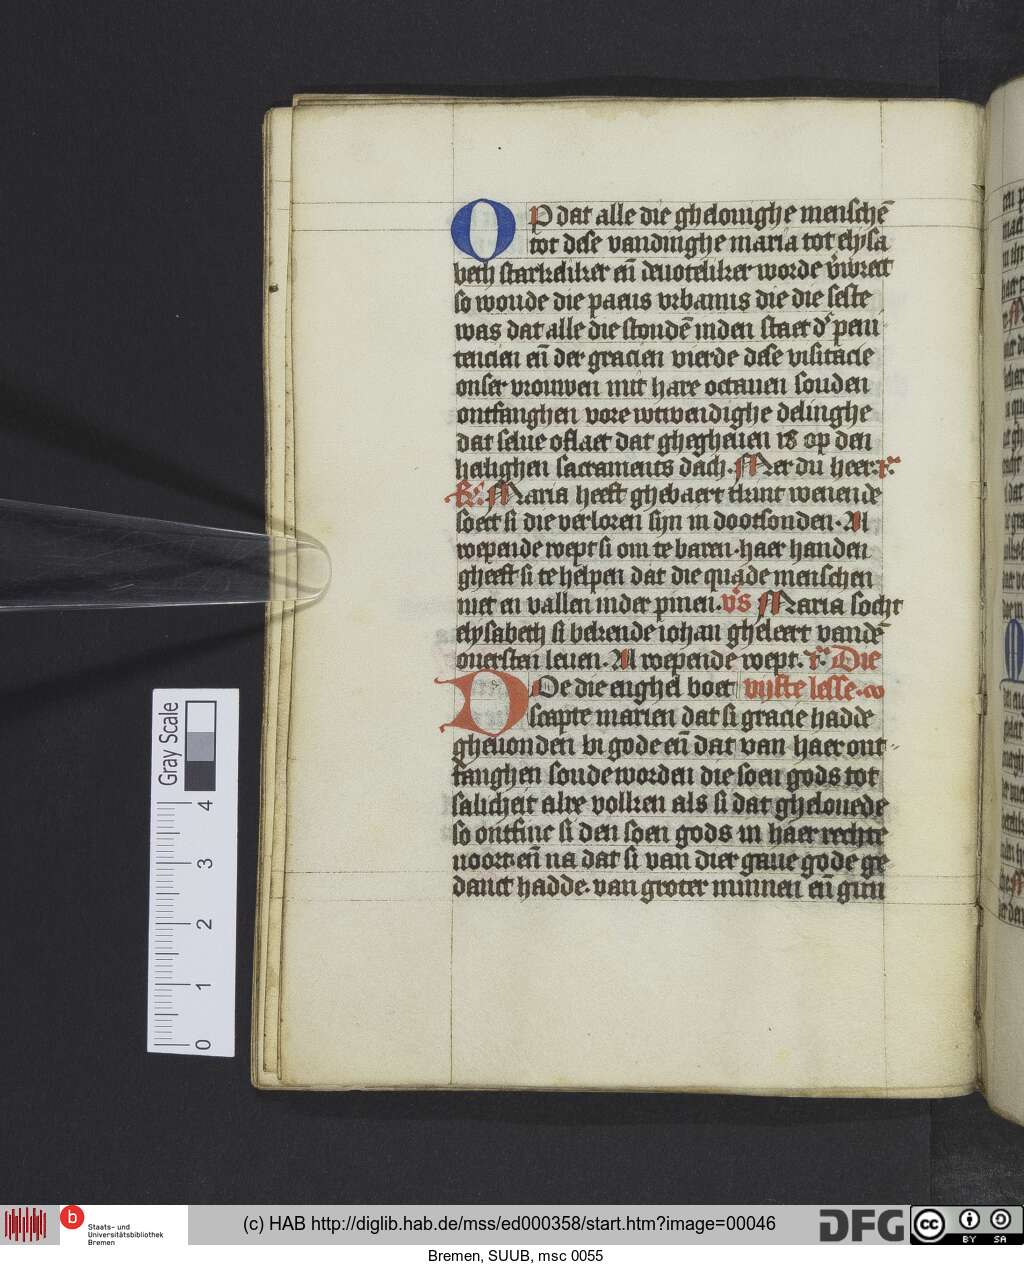 OP dat alle die ghelouighe menschē
tot dese vandinghe maria tot elysa
beth starkeliker eñ deuoteliker worde
so woude die paeus vrbanus die die seste
was dat alle die stondē inden staet d' peni
tencien eñ der gracien vierde dese visitacie
onser vrouwen mit hare octauen souden
ontfanghen vore wtwendighe delinghe
dat selue oflaet dat ghegheuen is op den
heilighen sacraments dach. Mer du heer.
Maria heeft ghebaert tkint wenende
soect si die verloren sijn in dootsonden. Al
roepende roept si om te baren. haer handen
gheeft si te helpen dat die quade menschen
niet en vallen inder pinen. v's Maria socht
elysabeth si bekende iohan gheleert vandē
ouersten leuen. Al roepende roept. r' Die
DOe die enghel boet vijfte lesse.
scapte marien dat si gracie hadde
gheuonden bi gode eñ dat van haer ont
fanghen soude worden die soen gods tot
salicheit alre volken als si dat ghelouede
so ontfinc si den soen gods in haer rechte
voort. eñ na dat si van dier gaue gode ge
danct hadde. van groter minnen eñ
Gray Scale
4
3
2
1
0
Staats- und
Universitätsbibliothek
Bremen
(c) HAB http://diglib.hab.de/mss/ed000358/start.htm?image=00046
DFG
cc BY SA
Bremen, SUUB, msc 0055